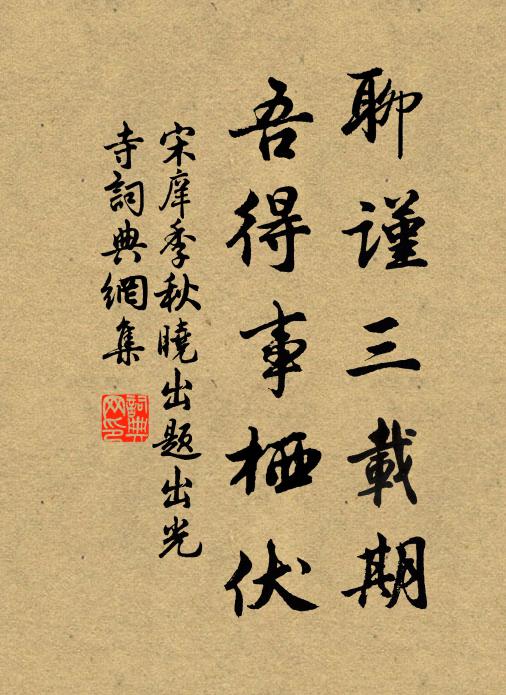 聊谨三載期
吾得事栖伏
宋庠季秋曉出題出光
寺詞典網集
詞典
网印